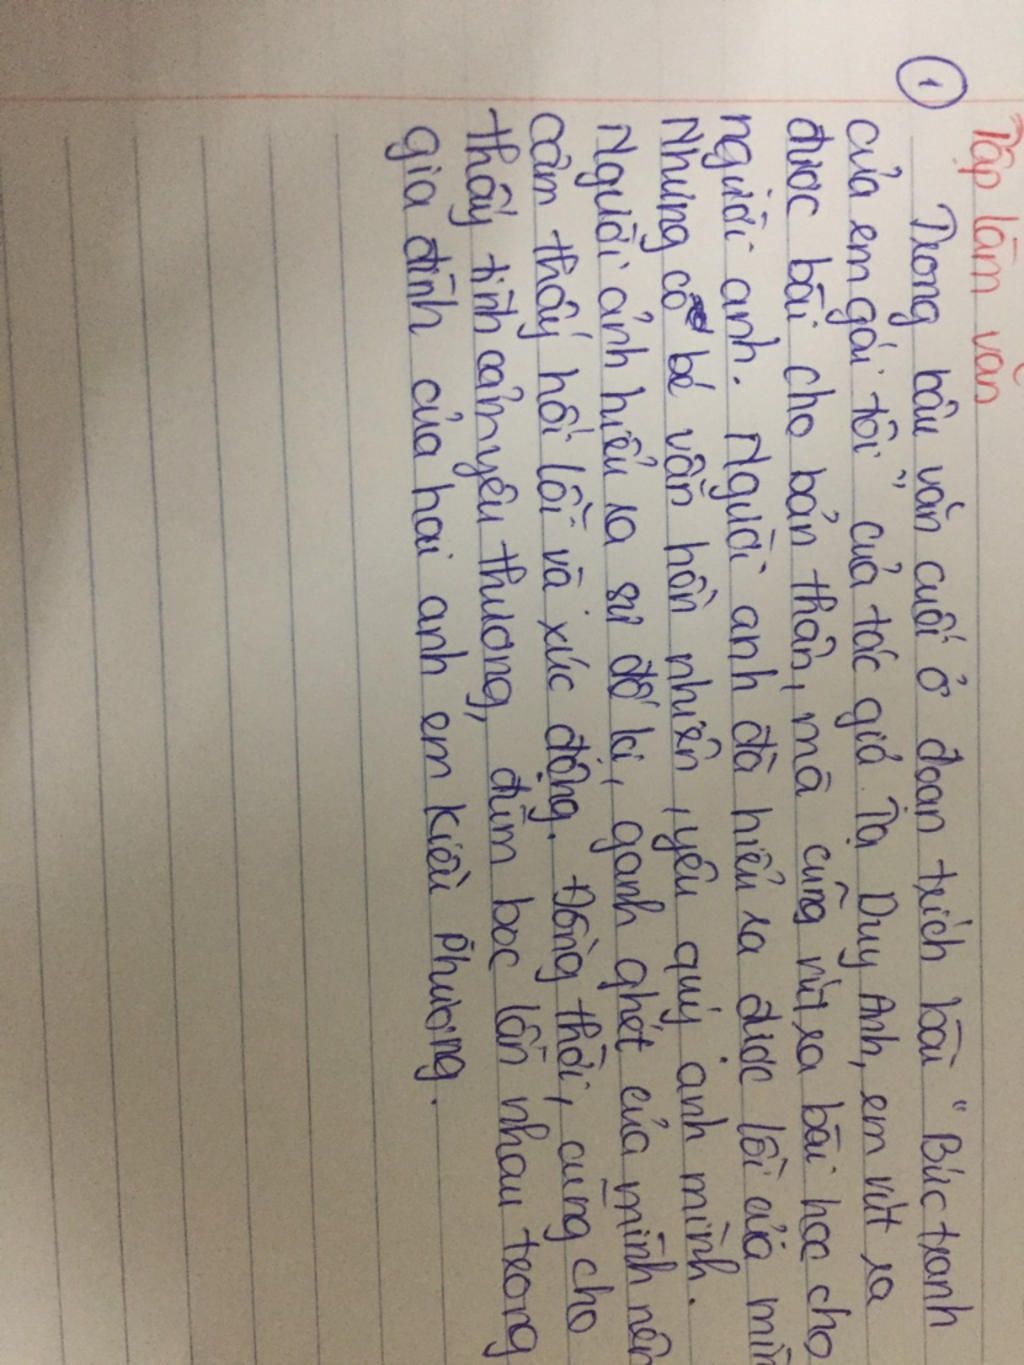 Tập làm văn
①
Trong bâu văn cuối ở đoạn trích bài "Bức tranh
của em gái tôi" của tác giả Tạ Duy Anh, em rút ra
được bài cho bản thân, mà cũng rút ra bài học cho
người anh. Người anh đã hiểu ra được lỗi của mìn
Nhưng cô bé vẫn hồn nhiên, yêu quý anh mình.
Người anh hiểu ra sự đố kị, ganh ghét của mình nên
cảm thấy hối lỗi và xúc động. Đồng thời, cũng cho
thấy tình cảm yêu thương, đùm bọc lẫn nhau trong
gia đình của hai anh em Kiều Phương.